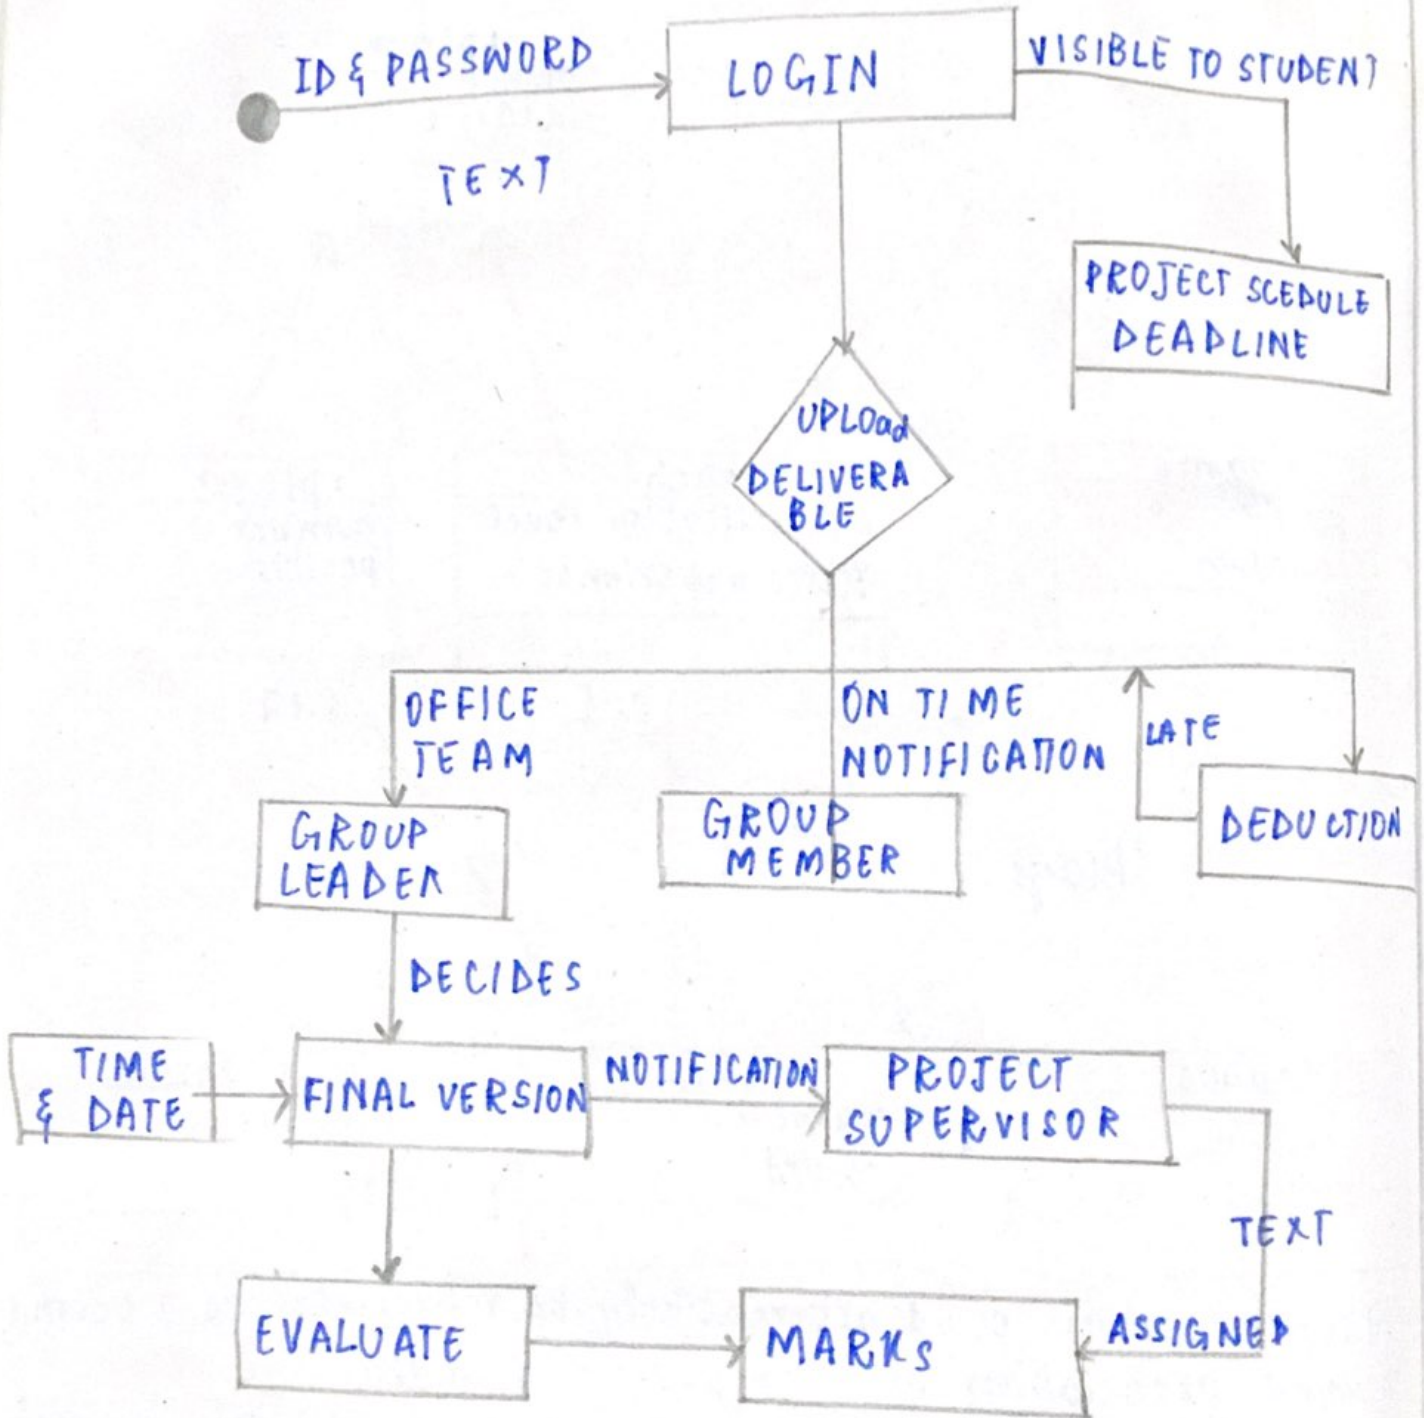 ID & PASSWORD
LOGIN
VISIBLE TO STUDENT
TEXT
PROJECT SCEDULE
DEADLINE
UPLOad
DELIVERA
BLE
OFFICE
TEAM
ON TIME
NOTIFICATION
LATE
GROUP
LEADER
GROUP
MEMBER
DEDUCTION
DECIDES
TIME
& DATE
FINAL VERSION
NOTIFICATION
PROJECT
SUPERVISOR
TEXT
EVALUATE
MARKs
ASSIGNED